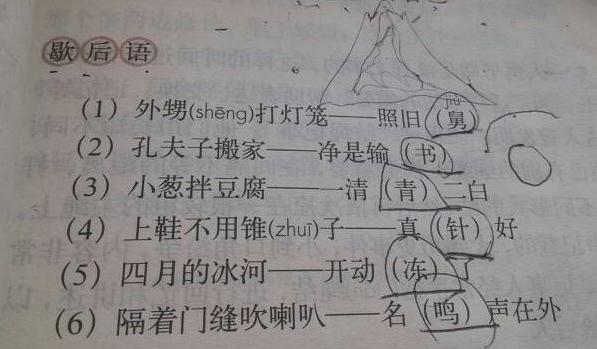 歇后语
(1) 外甥(shēng)打灯笼——照旧(舅)
(2) 孔夫子搬家——净是输(书)
(3) 小葱拌豆腐——一清(青)二白
(4) 上鞋不用锥(zhuī)子——真(针)好
(5) 四月的冰河——开动(冻)了
(6) 隔着门缝吹喇叭——名(鸣)声在外